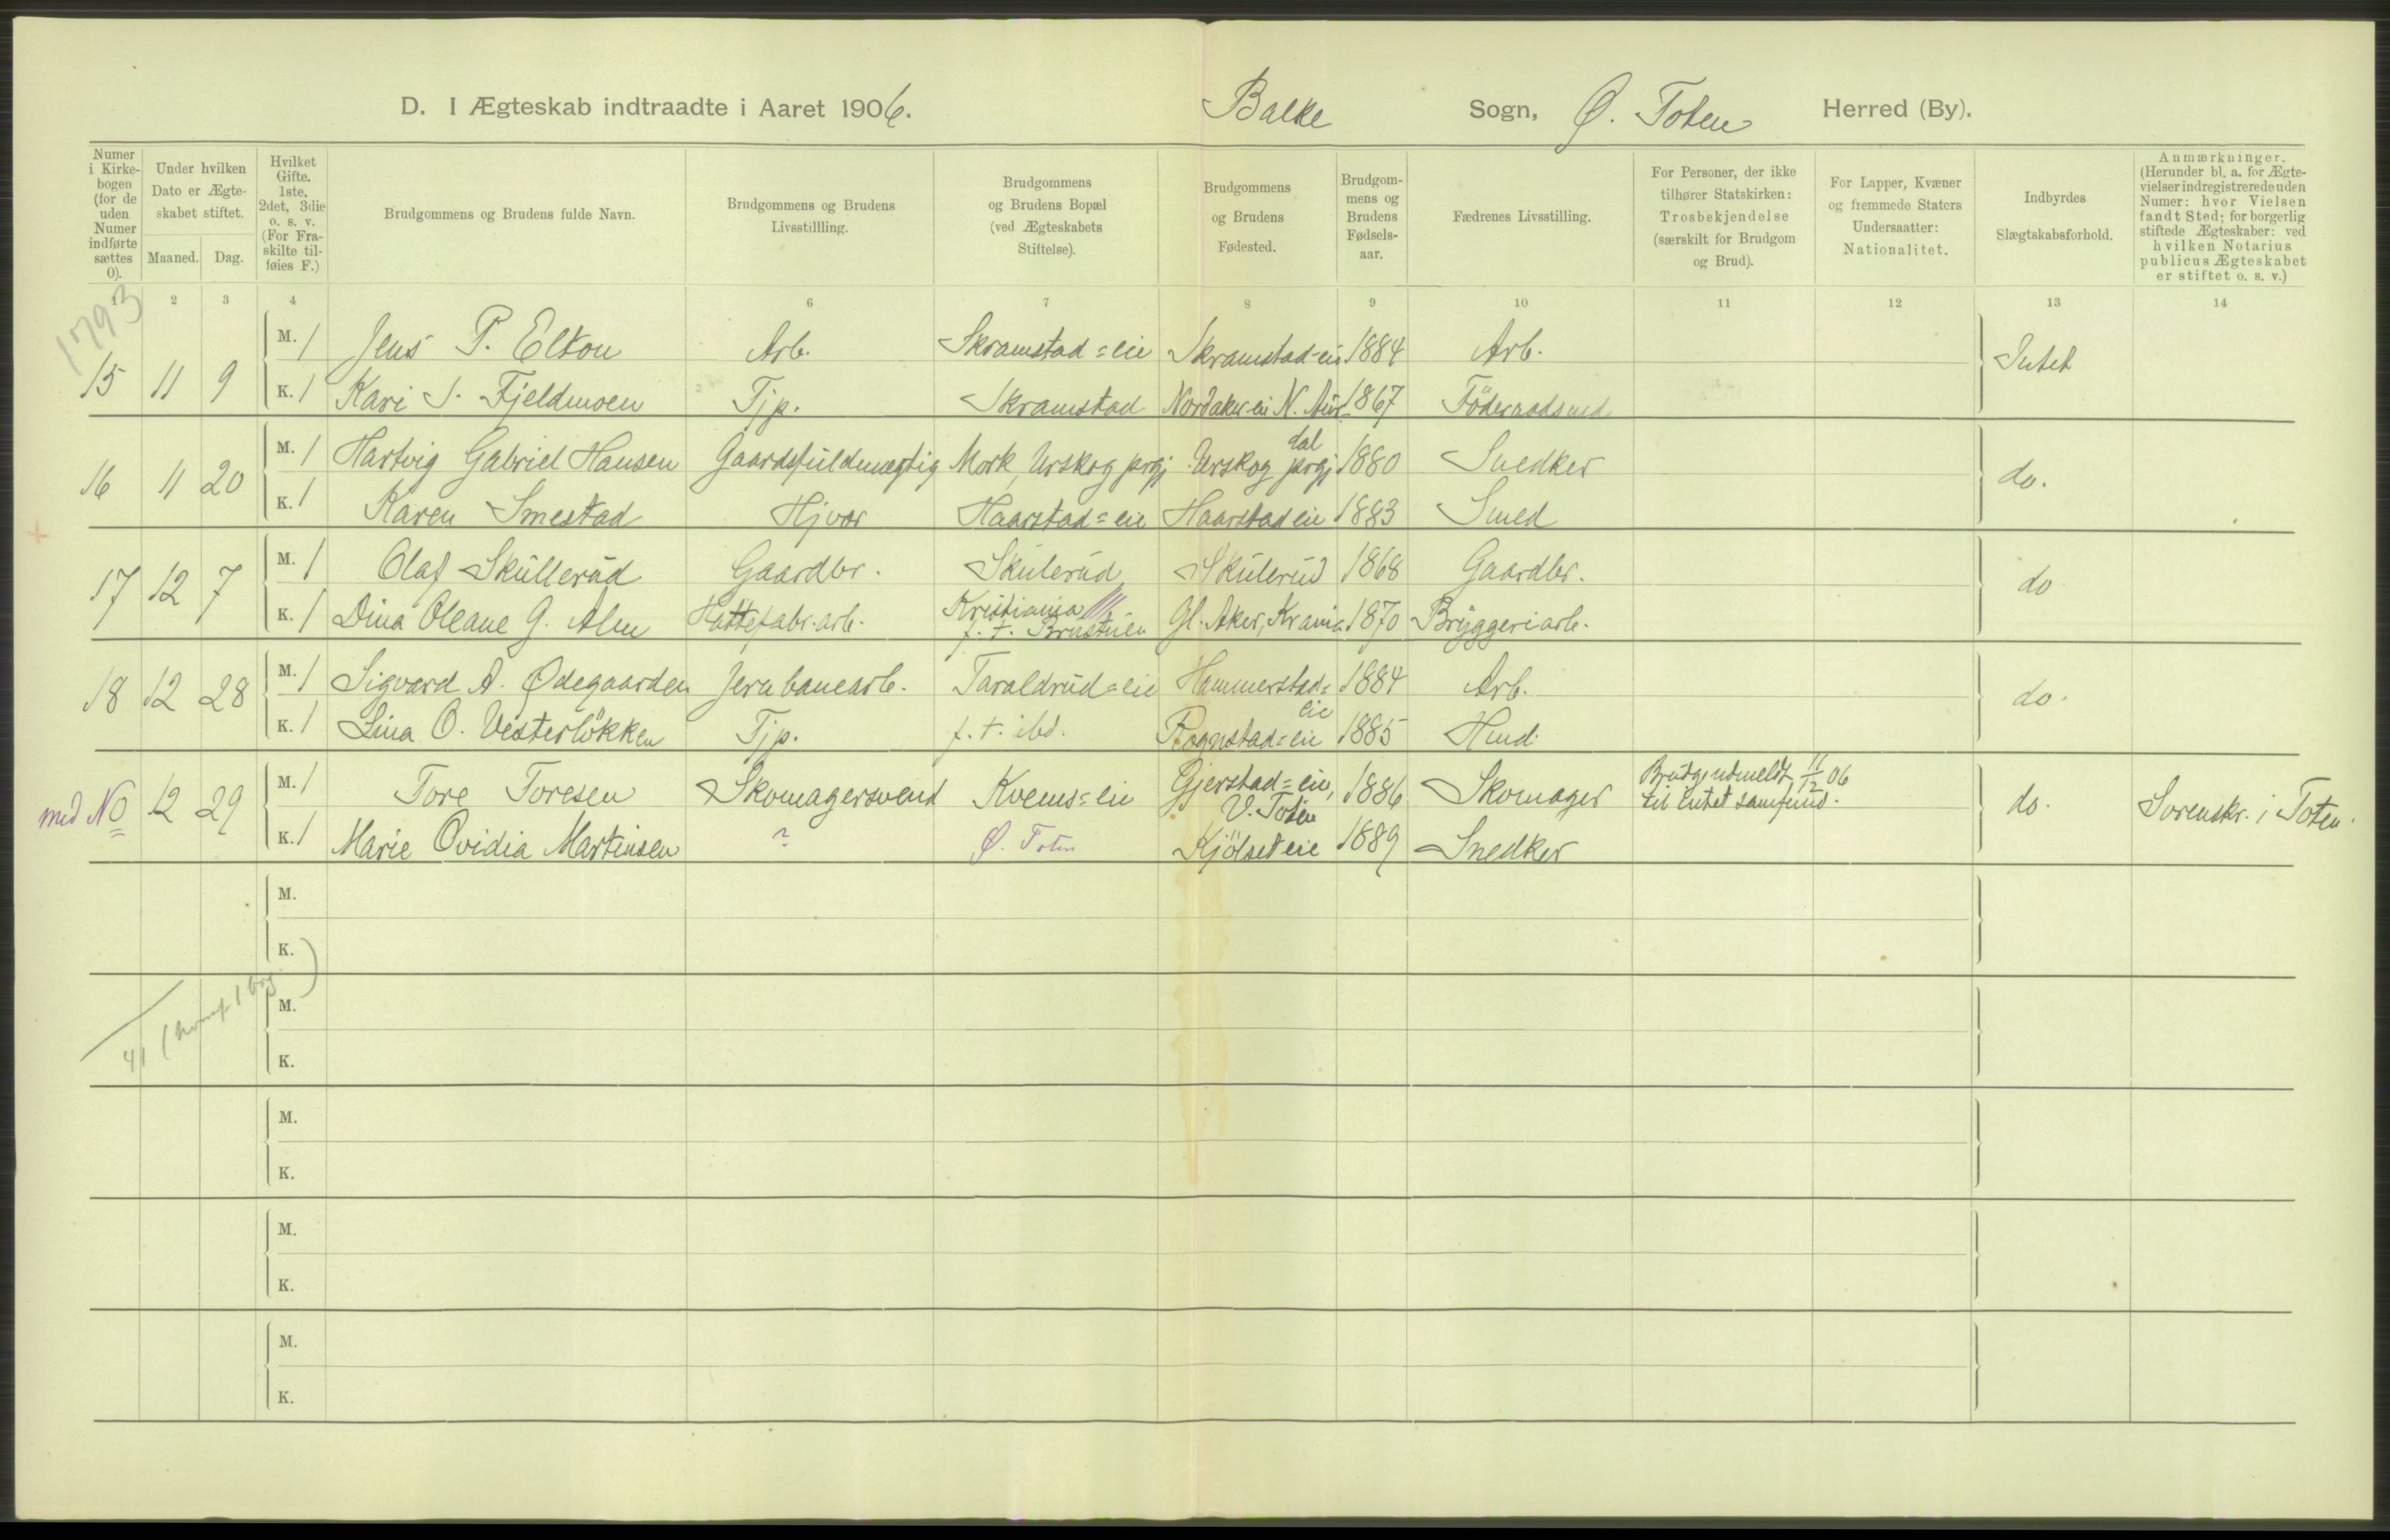 D. I Ægteskab indtraadte i Aaret 1906. Balke Sogn, Ø. Toten Herred (By).
Numer i Kirke-bogen (for de uden Numer indførte sættes 0).
Under hvilken Dato er Ægte-skabet stiftet.
Maaned. Dag.
Hvilket Gifte. 1ste, 2det, 3die o. s. v. (For Fra-skilte til-føies F.)
Brudgommens og Brudens fulde Navn.
Brudgommens og Brudens Livsstillling.
Brudgommens og Brudens Bopæl (ved Ægteskabets Stiftelse).
Brudgommens og Brudens Fødested.
Brudgom-mens og Brudens Fødsels-aar.
Fædrenes Livsstilling.
For Personer, der ikke tilhører Statskirken: Trosbekjendelse (særskilt for Brudgom og Brud).
For Lapper, Kvæner og fremmede Staters Undersaatter: Nationalitet.
Indbyrdes Slægtskabsforhold.
Anmærkninger. (Herunder bl. a. for Ægte-vielser indregistrerede uden Numer: hvor Vielsen fandt Sted; for borgerlig stiftede Ægteskaber: ved hvilken Notarius publicus Ægteskabet er stiftet o. s. v.)
1 2 3 4 6 7 8 9 10 11 12 13 14
1793
15 11 9 M. 1 Jens P. Elton Arb. Skramstad=eie Skramstad-eie 1884 Arb. Intet
K. 1 Kari J. Fjeldmoen Tjp. Skramstad Nordaker-eie N. Aur 1867 Föderaadsmd
dal
16 11 20 M. 1 Hartvig Gabriel Hansen Gaardsfuldmægtig Mork, Urskog prgj Urskog prgj 1880 Snedker do.
K. 1 Karen Smestad Hjvær Haarstad=eie Haarstad eie 1883 Smed
17 12 7 M. 1 Olaf Skullerud Gaardbr. Skulerud Skulerud 1868 Gaardbr. do
K. 1 Dina Oleane G. Alm Hattefabr.arb. Kristiania f. t. Brustuen Gl. Aker, Krania 1870 Bryggeriarb.
18 12 28 M. 1 Sigvard A. Ødegaarden Jernbanearb. Taraldrud=eie Hammerstad=eie 1884 Arb. do.
K. 1 Lina O. Vesterlökken Tjp. f. t. ibd. Rognstad=eie 1885 Hmd.
med No 12 29 M. 1 Tore Toresen Skomagersvend Kvems=eie Gjerstad=eie, V. Toten 1886 Skomager Brudg. udmeldt 11/12 06 til intet samfund. do. Sorenskr. i Toten.
K. 1 Marie Ovidia Martinsen ? Ø. Toten Kjölset eie 1889 Snedker
M.
K.
41
M.
K.
M.
K.
M.
K.
M.
K.